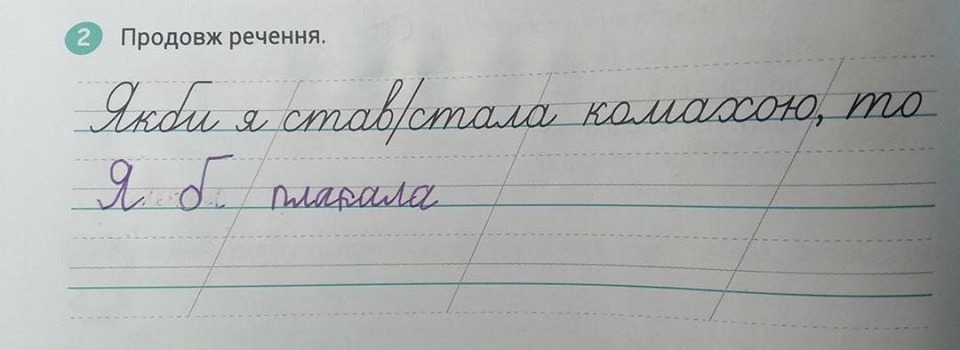 2 Продовж речення.
Якби я став/стала комахою, то
Я б плакала